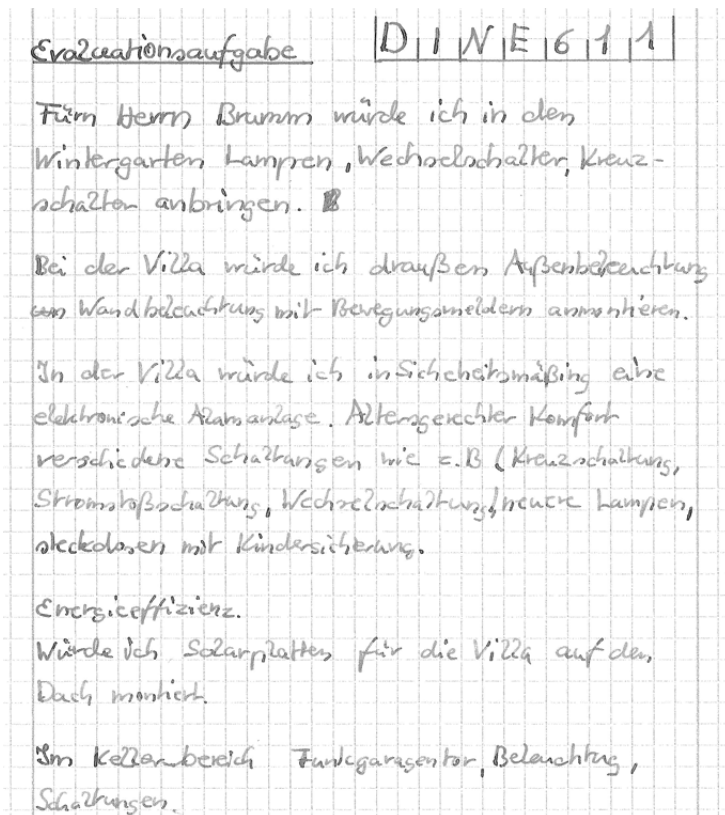 Evaluationsaufgabe DINE611
Fürn Herrn Brumm würde ich in den
Wintergarten Lampen, Wechselschalter, Kreuz-
schalter anbringen.
Bei der Villa würde ich draußen Außenbeleuchtung
Wandbeleuchtung mit Bewegungsmeldern anmontieren.
In der Villa würde ich in Sicheheitsmäßing eine
elektronische Alamanlage. Altersgerechter Komfort
verschiedene Schaltungen wie z.B (Kreuzschaltung,
Stromstoßschaltung, Wechselschaltung) neuere Lampen,
steckdosen mit Kindersicherung.
Energieeffizienz.
Würde ich Solarplatten für die Villa auf den
Dach montiert.
Im Kellerbereich Funkgaragentor, Beleuchtug,
Schaltungen.